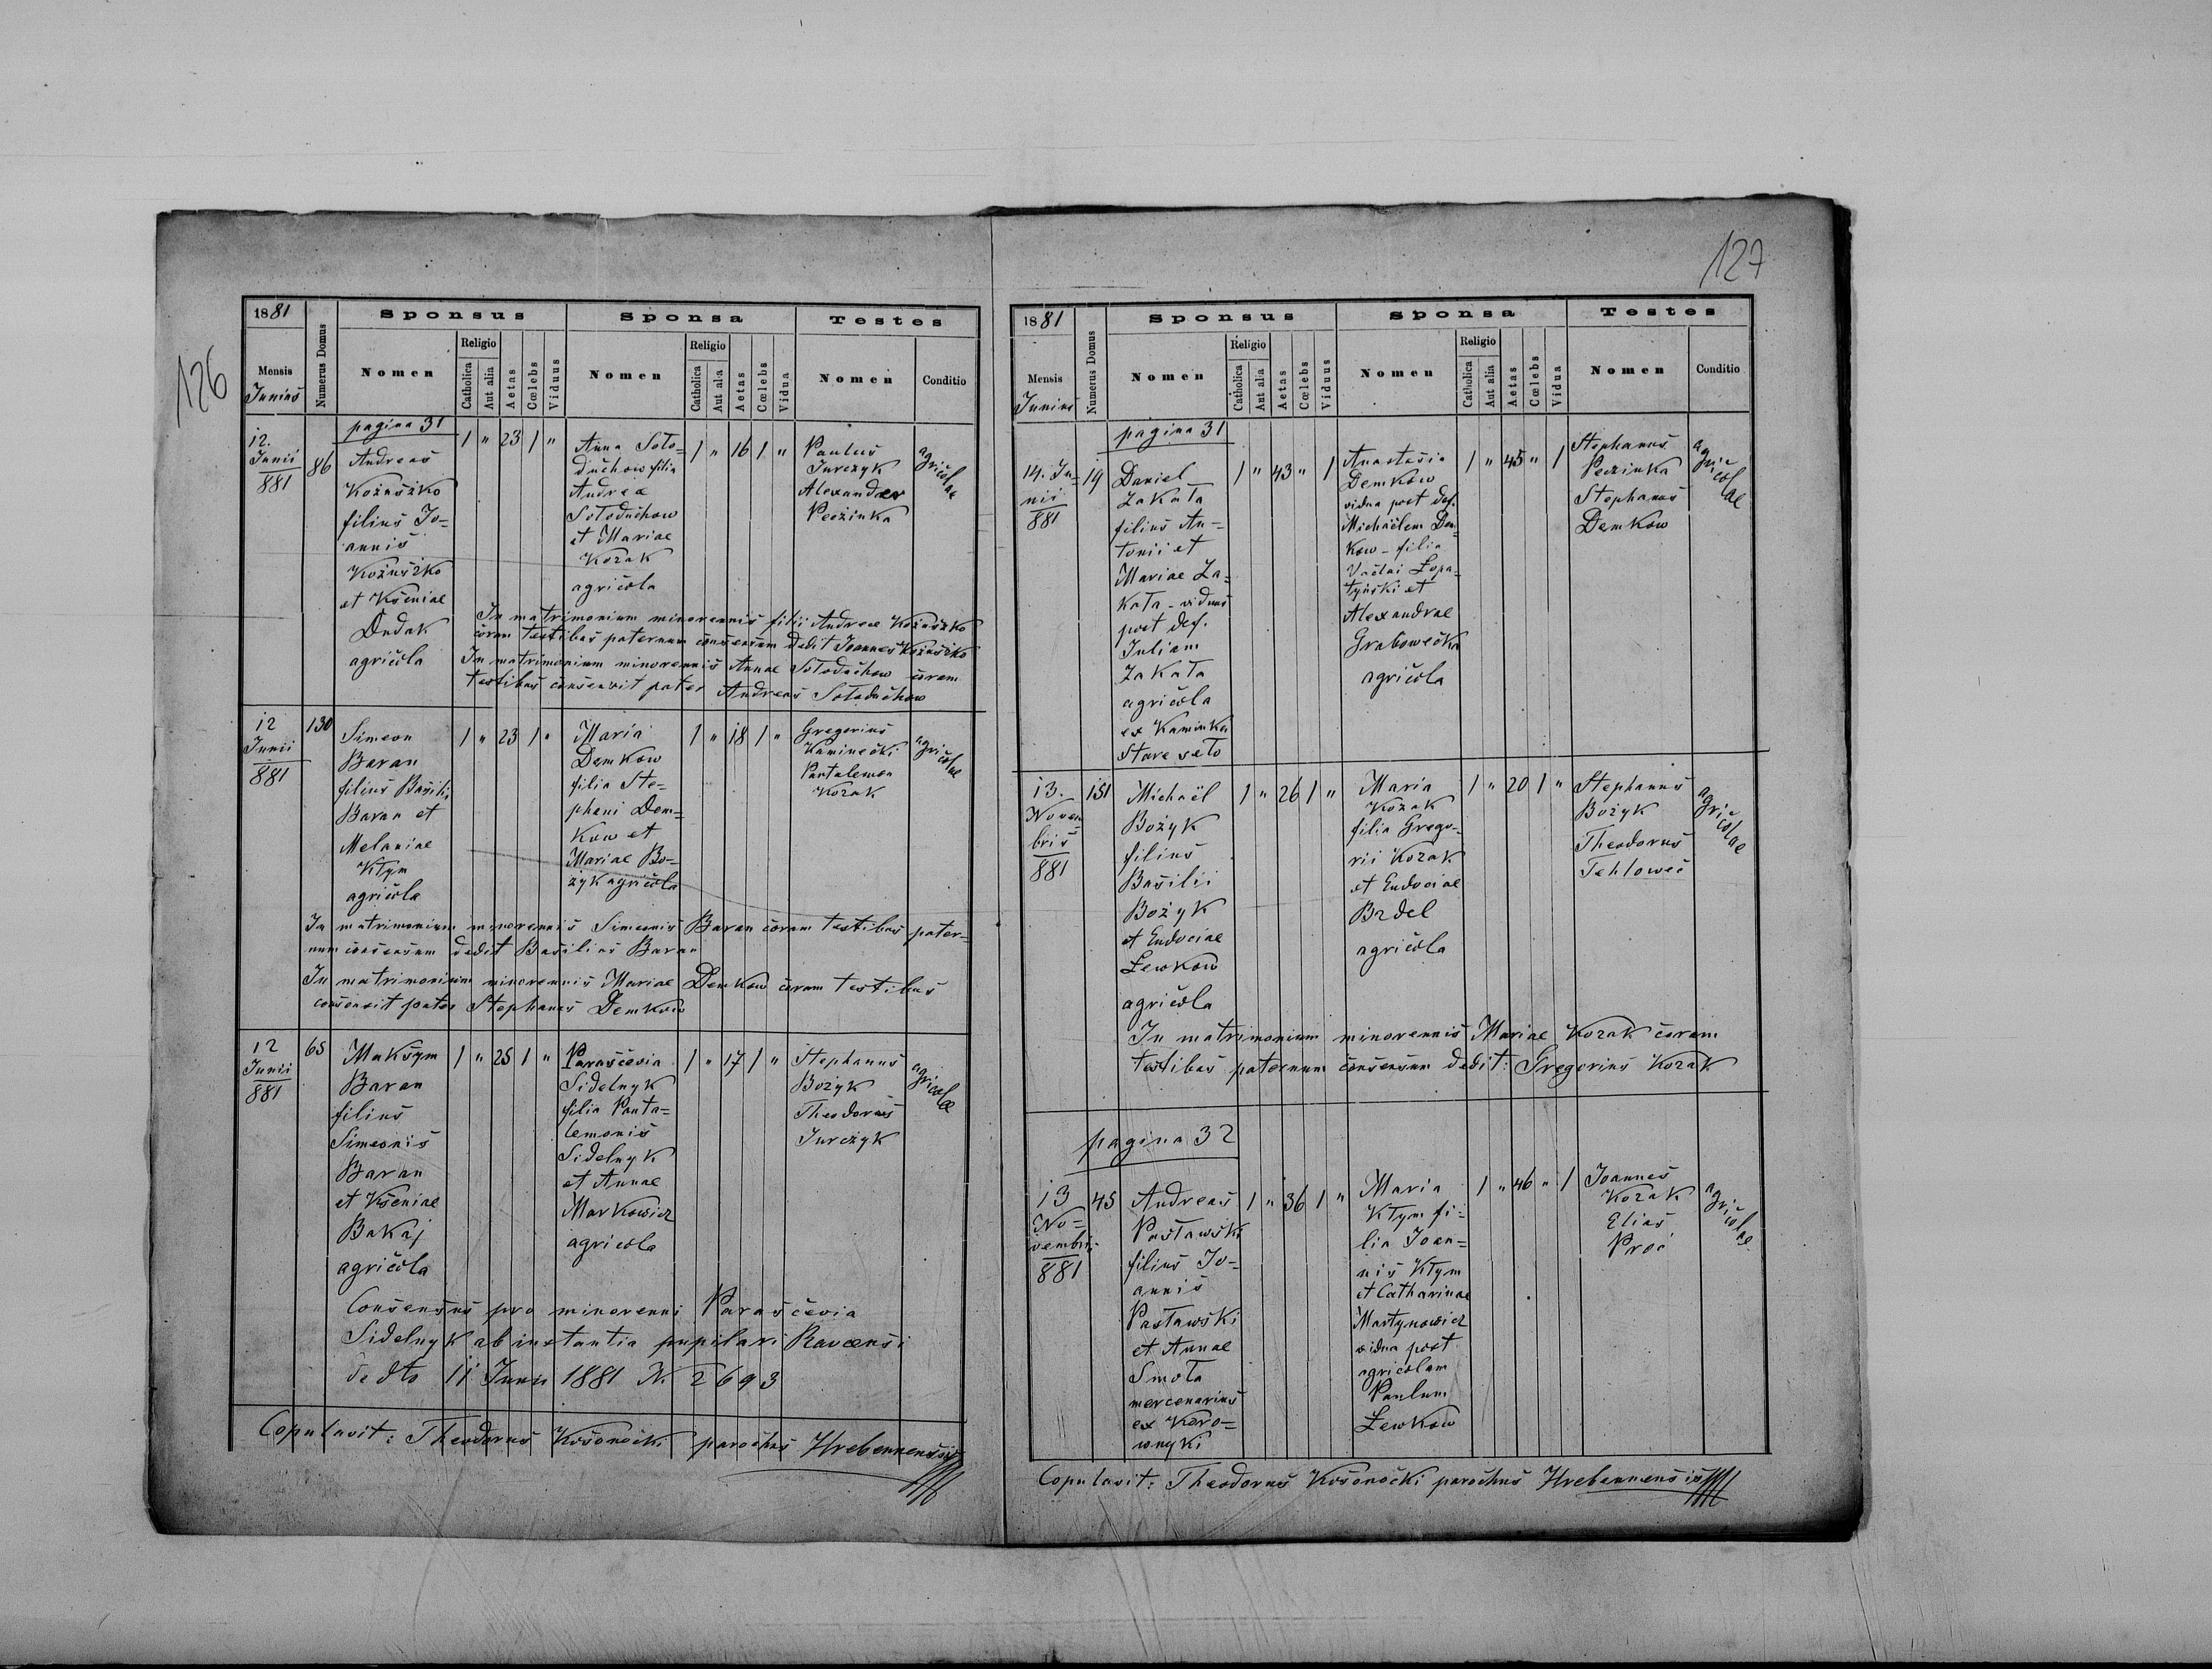 126
1881
Sponsus
Sponsa
Testes
Mensis
Junius
Numerus Domus
Nomen
Religio
Catholica
Aut alia
Aetas
Cœlebs
Viduus
Nomen
Religio
Catholica
Aut alia
Aetas
Cœlebs
Vidua
Nomen
Conditio
pagina 31
12.
Junii
881
86
Andreas
Kożuszko
filius Jo=
annis
Kożuszko
et Kseniae
Dudak
agricola
1 " 23 1 "
Anna Soło=
duchow filia
Andreae
Sołoduchow
et Mariae
Kozak
agricola
1 " 16 1 "
Paulus
Jurczyk
Alexander
Peczinka
agricolae
In matrimonium minorennis filii Andreae Kożuszko
coram testibus paternum consensum dedit Joannes Kożuszko
In matrimonium minorennis Annae Sołoduchow coram
testibus consensit pater Andreas Sołoduchow
12
Junii
881
130
Simeon
Baran
filius Basilii
Baran et
Melaniae
Kłym
agricola
1 " 23 1 "
Maria
Demkow
filia Ste=
phani Dem=
kow et
Mariae Bo=
żyk agricola
1 " 18 1 "
Gregorius
Kaminecki
Pantalemon
Kozak
agricolae
In matrimonium minorennis Simeonis Baran coram testibus pater=
num consensum dedit Basilius Baran
In matrimonium minorennis Mariae Demkow coram testibus
consensit pater Stephanus Demkow
12
Junii
881
65
Maksym
Baran
filius
Simeonis
Baran
et Kseniae
Bakaj
agricola
1 " 25 1 "
Parascevia
Sidelnyk
filia Panta=
lemonis
Sidelnyk
et Annae
Markowicz
agricola
1 " 17 1 "
Stephanus
Bożyk
Theodorus
Jurczyk
agricolae
Consensus pro minorenni Parascevia
Sidelnyk ab instantia pupilari Ravensi
de dto 11 Junii 1881 N. 2693
Copulavit: Theodorus Kosonocki parochus Hrebennensis
127
1881
Sponsus
Sponsa
Testes
Mensis
Junius
Numerus Domus
Nomen
Religio
Catholica
Aut alia
Aetas
Cœlebs
Viduus
Nomen
Religio
Catholica
Aut alia
Aetas
Cœlebs
Vidua
Nomen
Conditio
pagina 31
14. Ju=
nii
881
19
Daniel
Zakała
filius An=
tonii et
Mariae Za=
kała - viduus
post def.
Juliam
Zakała
agricola
ex Kaminka
Stare seło
1 " 43 " 1
Anastasia
Demkow
vidua post def.
Michaëlem Dem=
kow - filia
Łopa=
tyński et
Alexandrae
Grabowecka
agricola
1 " 45 " 1
Stephanus
Peczinka
Stephanus
Demkow
agricolae
13.
Novem
bris
881
151
Michaël
Bożyk
filius
Basilii
Bożyk
et Eudociae
Lewkow
agricola
1 " 26 1 "
Maria
Kozak
filia Grego=
rii Kozak
et Eudociae
Brdel
agricola
1 " 20 1 "
Stephanus
Bożyk
Theodorus
Tehlowec
agricolae
In matrimonium minorennis Mariae Kozak coram
testibus paternum consensum dedit: Gregorius Kozak
pagina 32
13
No=
vembris
881
45
Andreas
Pastawski
filius Jo=
annis
Pastawski
et Annae
Smoła
mercenarius
ex Wero=
wnyki
1 " 36 1 "
Maria
Kłym fi=
lia Joan=
nis Kłym
et Catharinae
Martynowicz
vidua post
agricolam
Paulum
Lewkow
1 " 46 " 1
Joannes
Kozak
Elias
Proc
agricolae
Copulavit: Theodorus Kosonocki parochus Hrebennensis